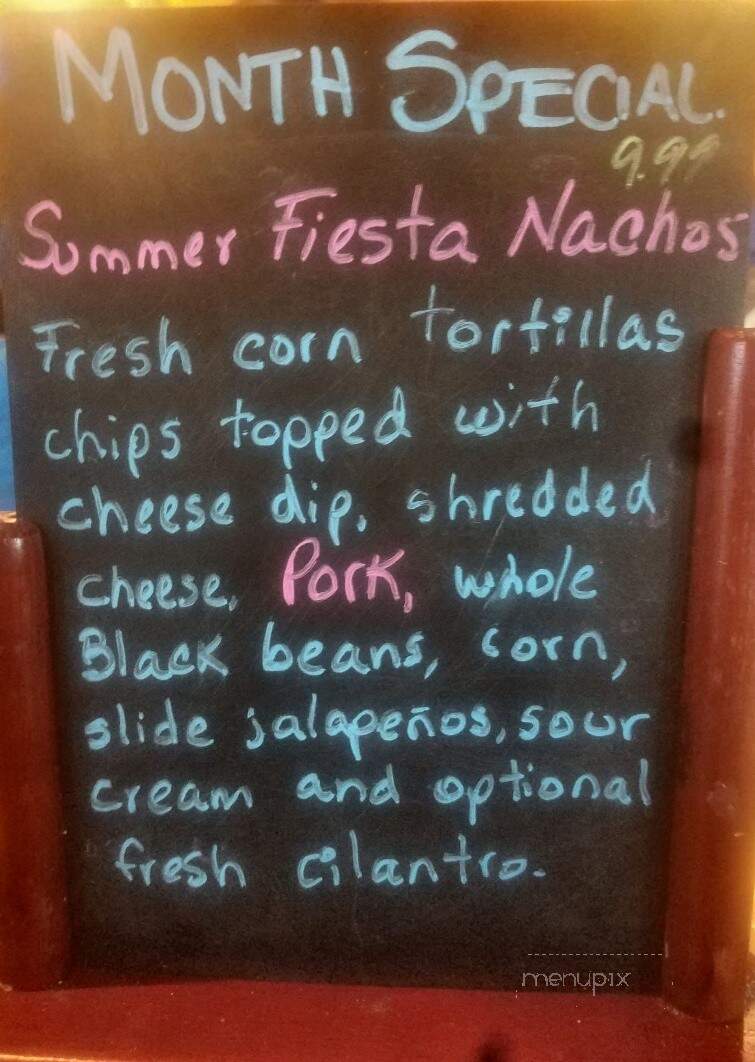 MONTH SPECIAL.
9.99
Summer Fiesta Nachos
Fresh corn tortillas
chips topped with
cheese dip, shredded
cheese, Pork, whole
Black beans, corn,
slide jalapeños, sour
cream and optional
fresh cilantro.
menupix